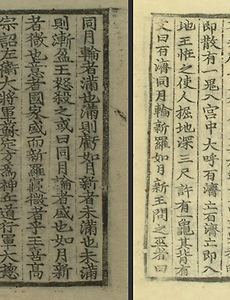 即散有一鬼入宮中大呼百濟亡百濟亡即入
地王恠之使人掘地深三尺許有一龜其背有
文曰百濟同月輪新羅如月新王問之巫者曰
同月輪者滿也滿則虧如月新者未滿也未滿
則漸盈王怒殺之或曰同月輪者盛也如月新
者微也意者國家盛而新羅寖微者乎王喜高
宗詔左衛大將軍蘇定方為神丘道行軍大摠